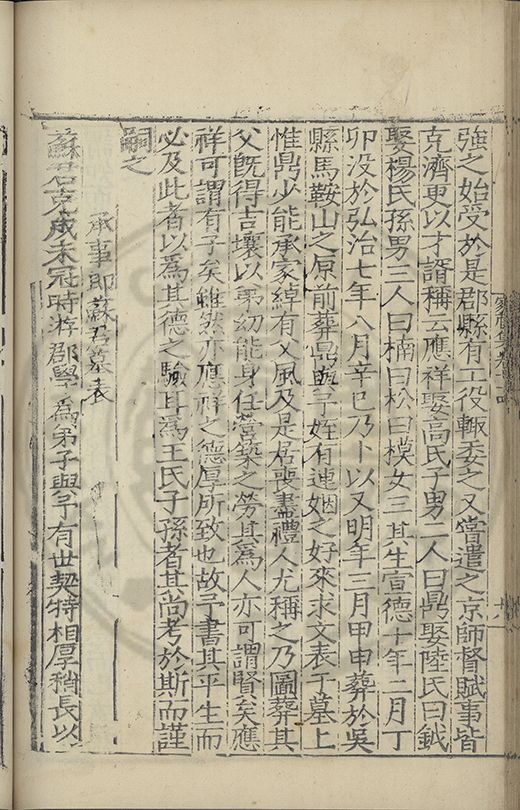 強之始受於是郡縣有工役輙委之又嘗遣之京師督賦事皆
克濟更以才諝稱云應祥娶高氏子男二人曰鼎娶陸氏曰鉞
娶楊氏孫男三人曰楠曰松曰模女三其生宣德十年二月丁
卯没於弘治七年八月辛巳乃卜以又明年三月甲申葬於吳
縣馬鞍山之原前葬鼎與予姪有連姻之好來求文表于墓上
惟鼎少能承家綽有父風及是居喪盡禮人尤稱之乃圖葬其
父旣得吉壤以弟幼能身任營築之勞其爲人亦可謂賢矣應
祥可謂有子矣雖然亦應祥之德厚所致也故予書其平生而
必及此者以爲其德之驗耳爲王氏子孫者其尚考於斯而謹
嗣之
承事郎蘇君墓表
蘇君克成未冠時游郡學爲弟子與予有世契特相厚稍長以